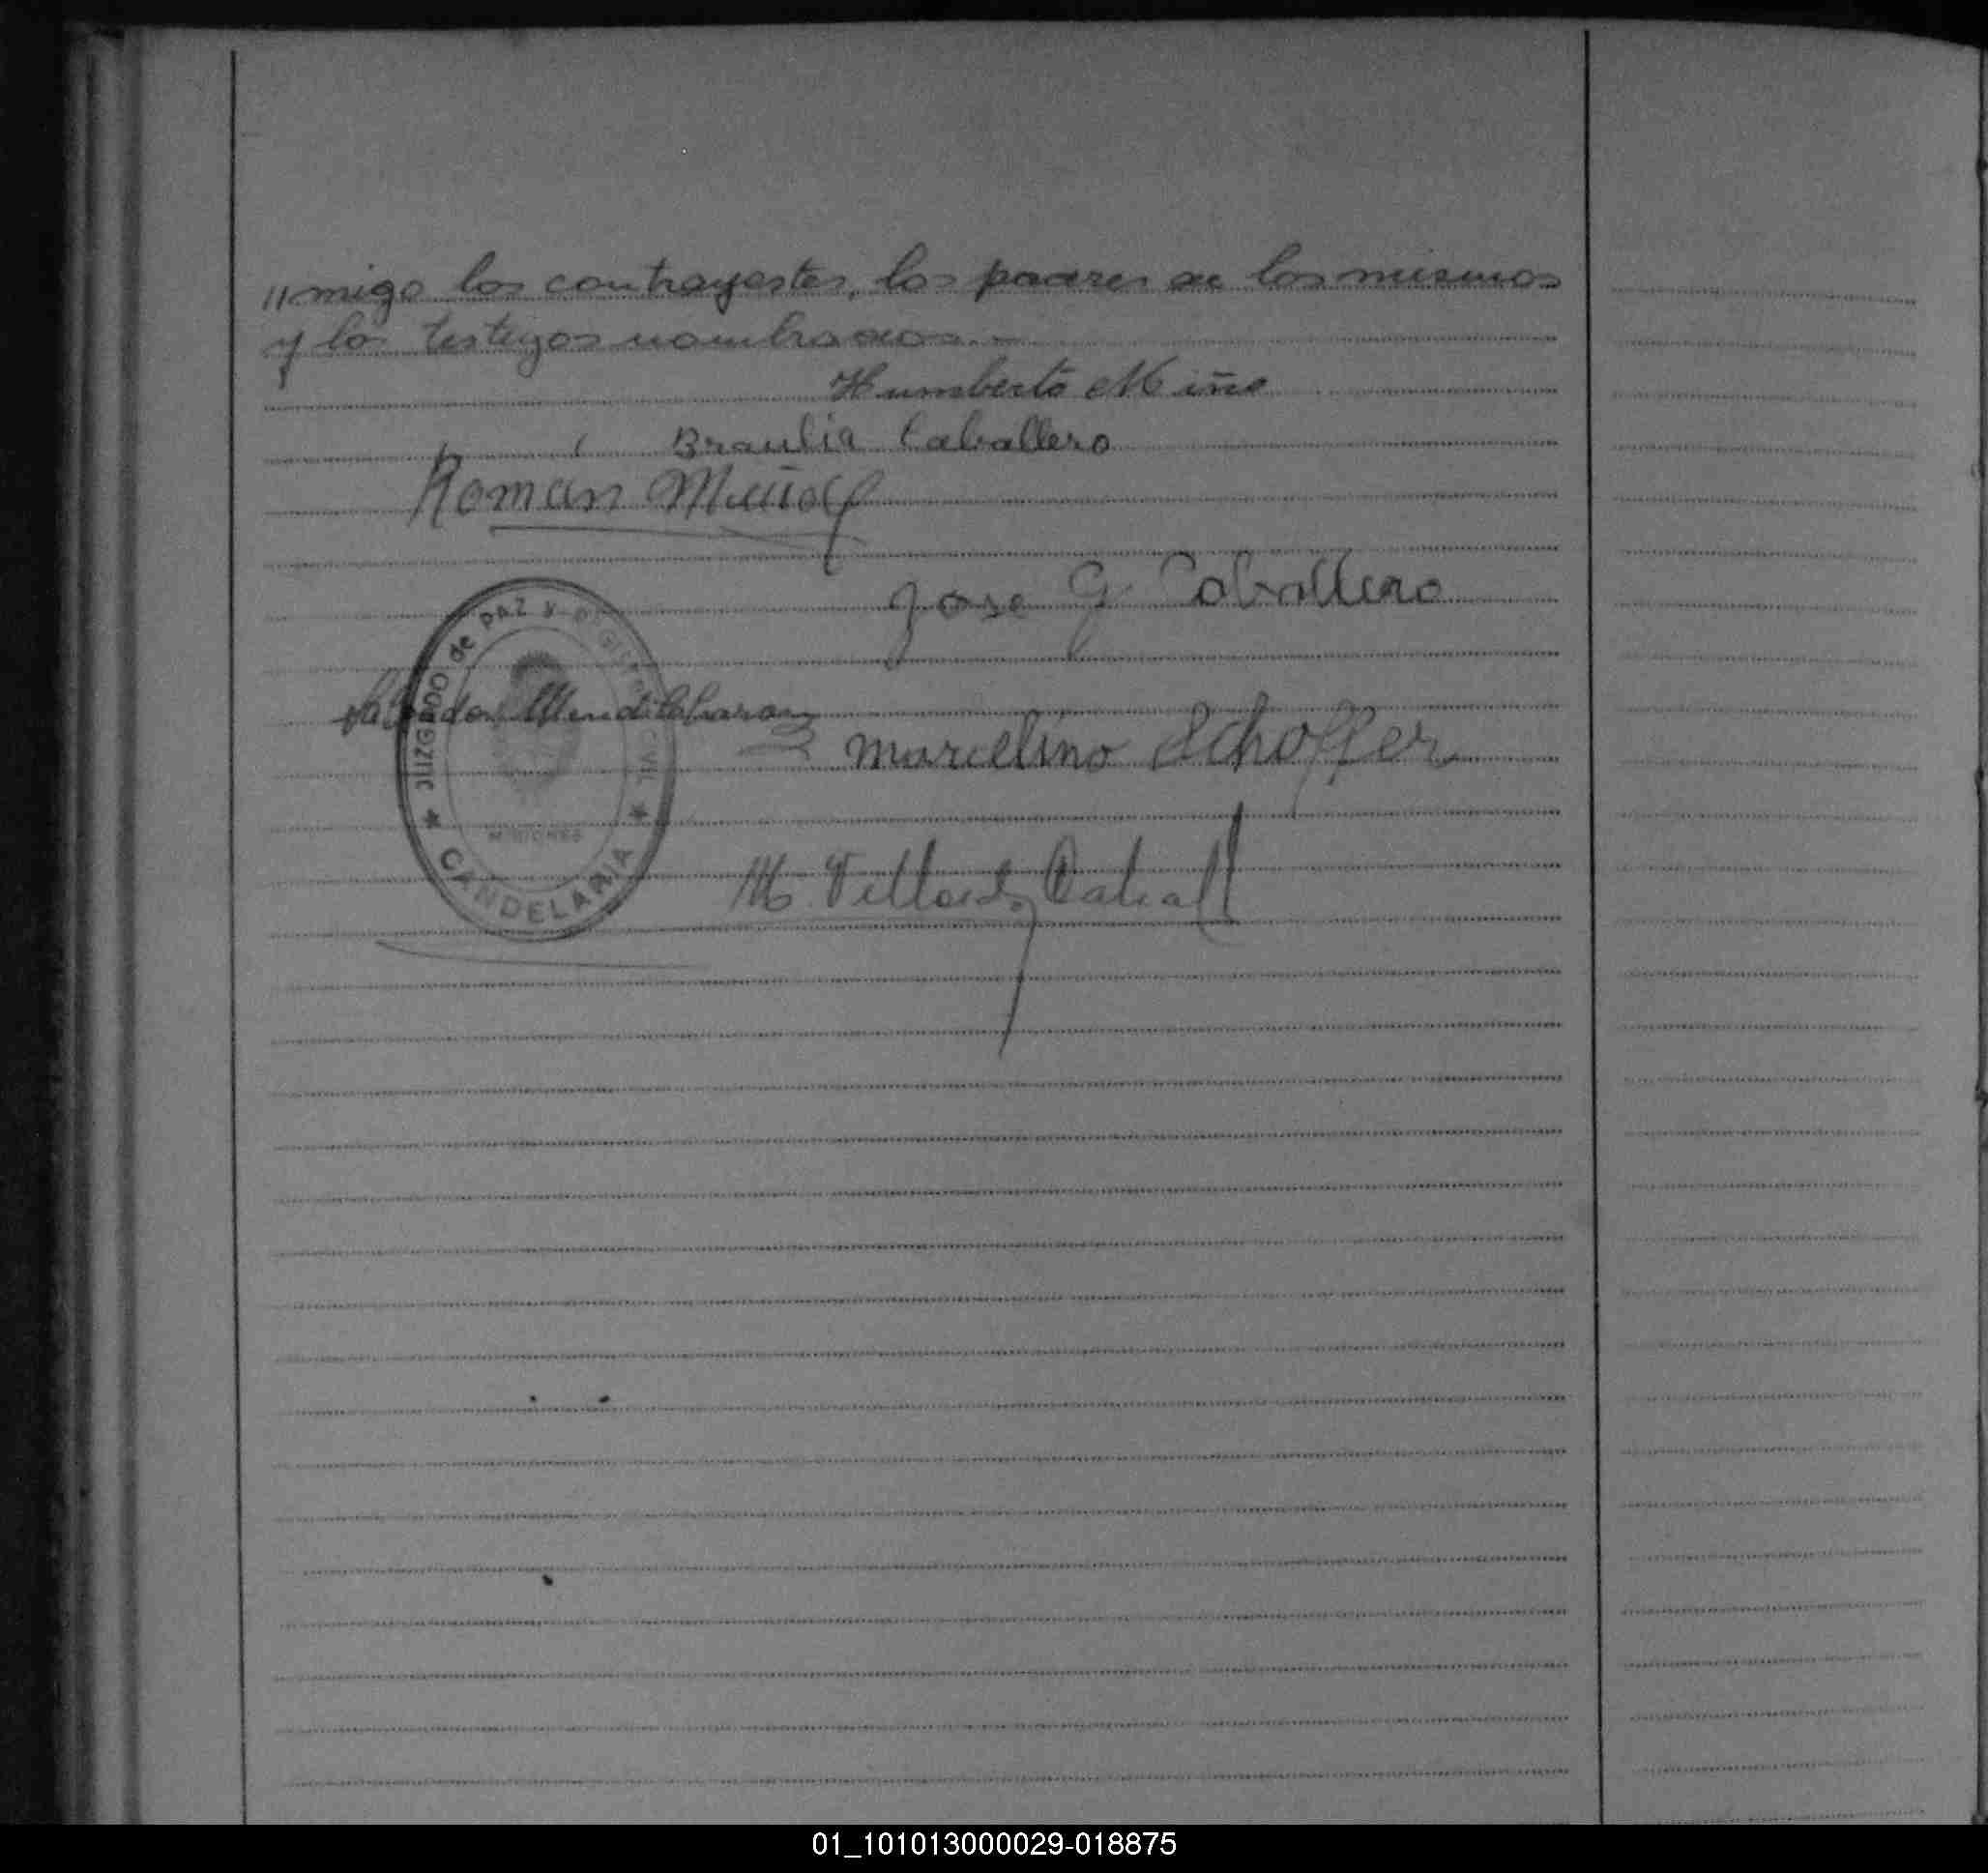 "migo los contrayestes, los padres de los mismos
y los testigos nombrados.-
Humberto Miño
Braulia Caballero
Román Miño
Jose G. Caballero
JUZGADO de PAZ Y REGISTRO CIVIL
Salvador Mendilaharzu
marcelino Schoffer
MISIONES
★ CANDELARIA ★
M. Cabral
01_101013000029-018875